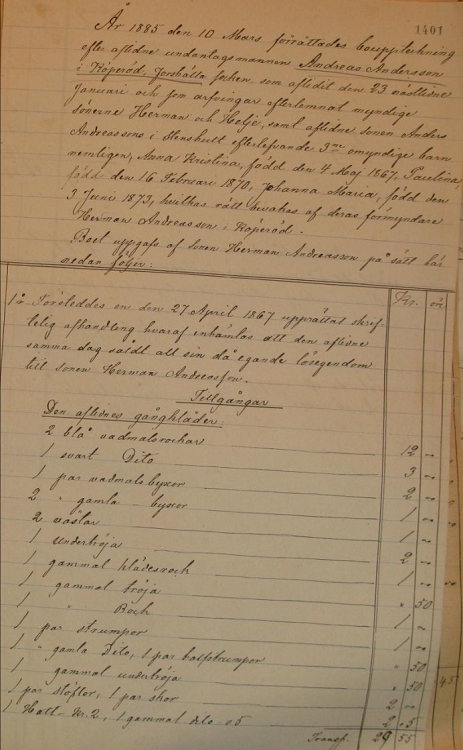 1401
År 1885 den 10 Mars förrättades bouppteckning
efter aflidne undantagsmannen Andreas Andersson
i Köperöd, Forshälla socken, som aflidit den 23 nästlidne
Januari och som arfvingar efterlemnat myndige
sönerne Herman och Helje, samt aflidne sonen Anders
Andreassons i Stenshult efterlefvande 3ne omyndige barn
nemligen, Anna Kristina, född den 4 Maj 1867, Paulina,
född den 16 Februari 1870, Johanna Maria, född den
3 Juni 1873, hvilkas rätt bevakas af deras förmyndare
Herman Andreasson i Köperöd.
Boet uppgafs af sonen Herman Andreasson på sätt här
nedan följer:
Kr. öre
1o Företeddes en den 27 April 1867 upprättat skrif-
telig afhandling hvaraf inhämtas att den aflidne
samma dag såldt all sin då egande lösegendom
till sonen Herman Andreasson.
Tillgångar
Den aflidnes gångkläder:
2 blå vadmalsrockar 12 "
1 svart Dito 3 "
1 par vadmalsbyxor 2 "
2 " gamla byxor 1 "
2 västar 1 "
1 undertröja 2 "
1 gammal klädesrock 1 "
1 gammal tröja " 50
1 " Rock 1 "
1 par strumpor 1 "
1 " gamla Dito, 1 par halfstrumpor " 50
1 gammal undertröja " 50
1 par stöflor, 1 par skor 2 "
1 Hatt Kr. 2, 1 gammal dito 05 2 05
Transp. 29 55